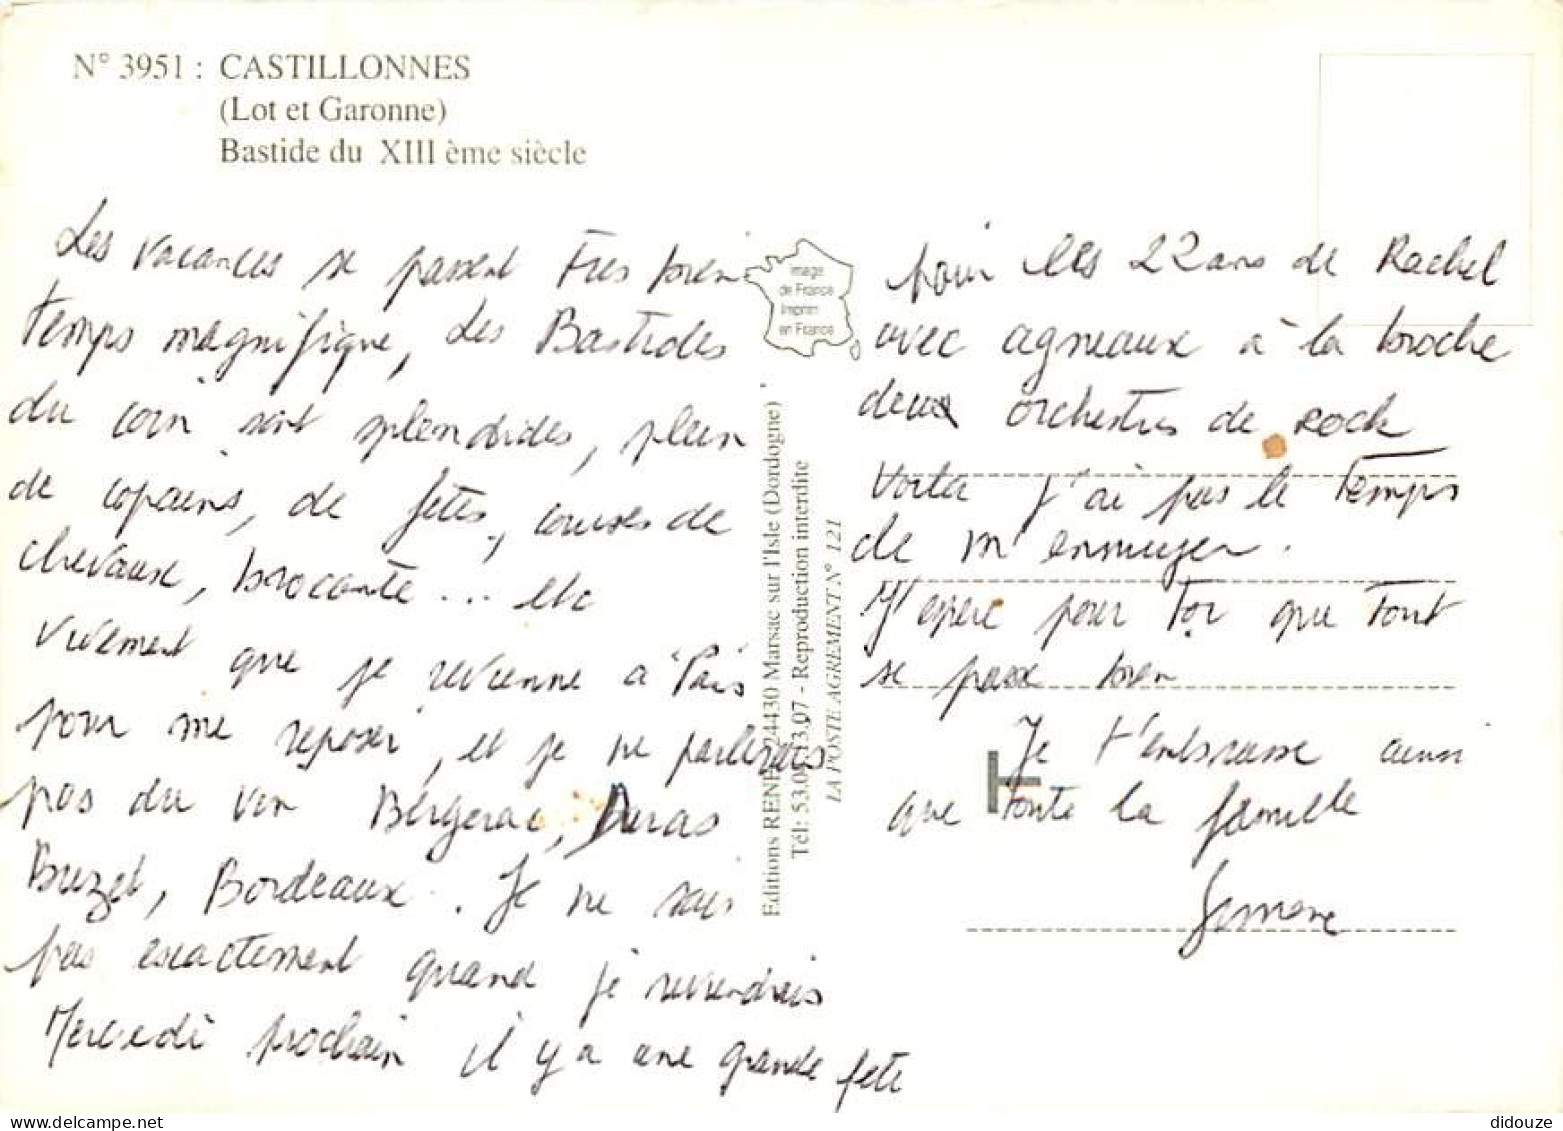 N° 3951 : CASTILLONNES
(Lot et Garonne)
Bastide du XIII ème siècle
Les vacances se passent très bien
temps magnifique, Les Bastides
du coin sont splendides, plein
de copains, de fêtes, courses de
chevaux, brocante... etc
vivement que je revienne à Paris
pour me reposer, et je ne parlerais
pas du vin Bergerac, Duras
Buzet, Bordeaux. Je ne sais
pas exactement quand je reviendrais
Mercredi prochain il y a une grande fête
Image
de France
Imprim
en France
Editions RENE 24430 Marsac sur l'Isle (Dordogne)
Tél: 53.0 13.07 - Reproduction interdite
LA POSTE AGREMENT N° 121
pour les 22 ans de Rachel
avec agneaux à la broche
deux orchestres de rock
Voila j'ai pas le temps
de m'ennuyer.
J'espere pour toi que tout
se passe bien
Je t'embrasse ainsi
que toute la famille
didouze